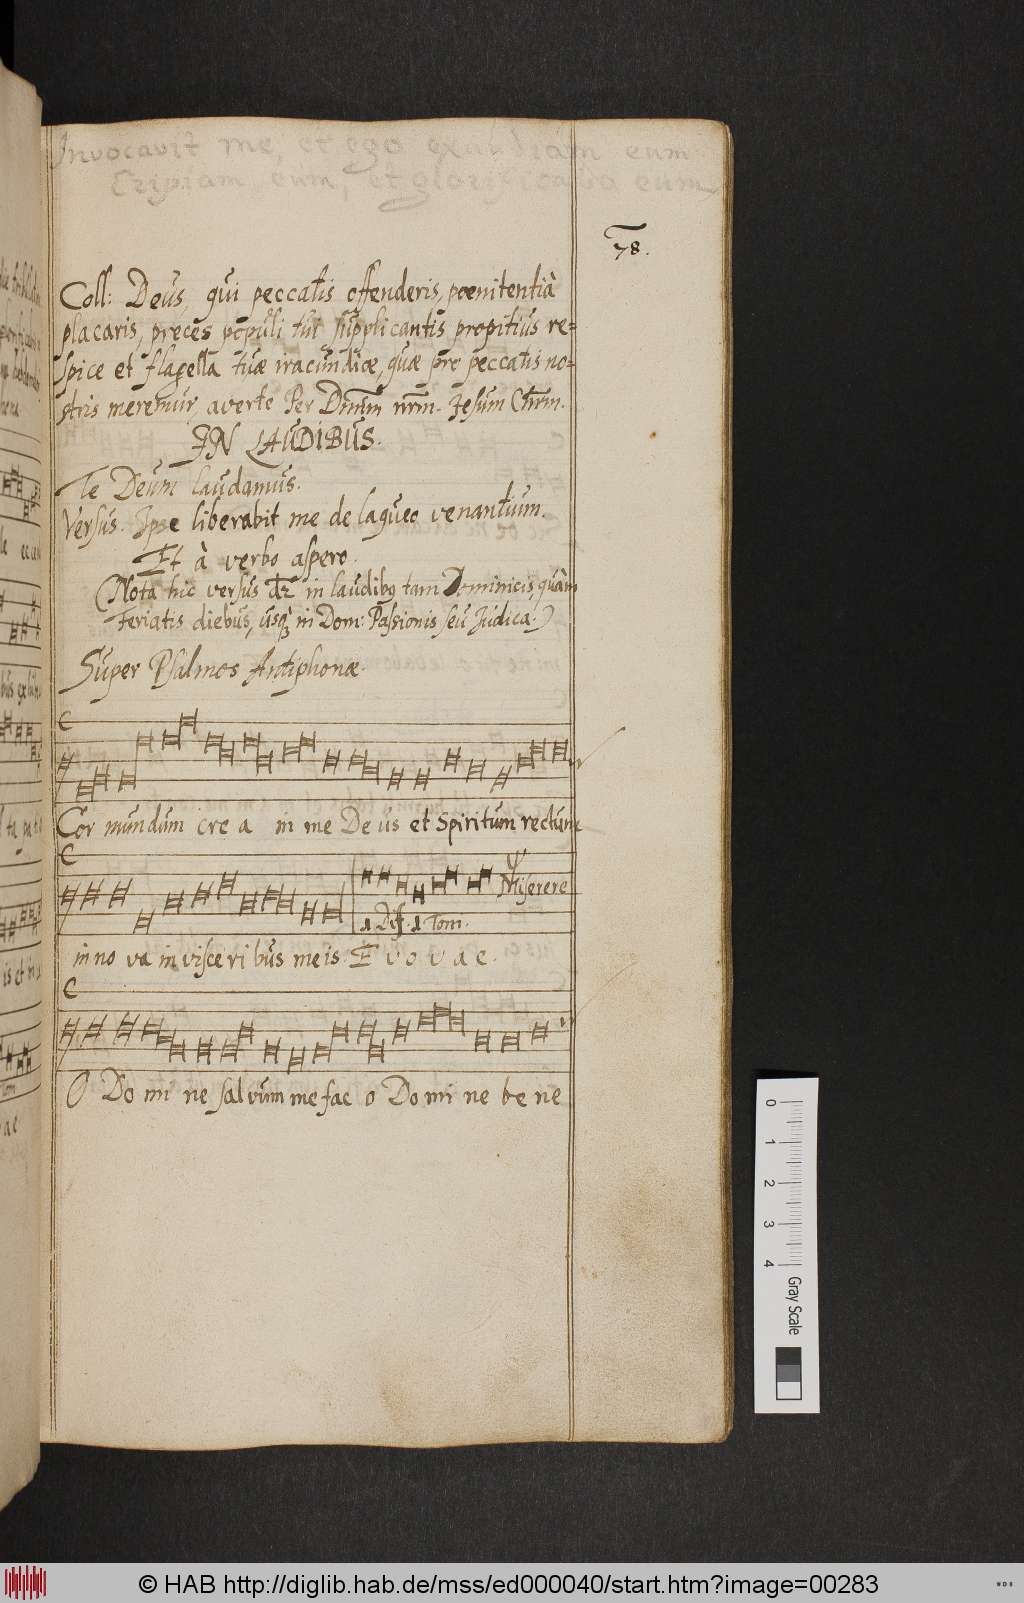 Invocavit me, et ego exaudiam eum
Eripiam eum, et glorificabo eum
78.
Coll: Deus, qui peccatis offenderis, poenitentiâ
placaris, preces populi tui supplicantis propitius re=
spice et flagella tuæ iracundiæ, quæ pro peccatis no=
stris meremur, averte Per Dnm nrm. Jesum Chrm.
IN LAUDIBUS.
Te Deum laudamus.
Versus. Ipse liberabit me de laqueo venantium.
Et à verbo aspero.
(Nota hic versus dr in laudibg tam Dominicis, quàm
Feriatis diebus, usq in Dom: Passionis seu Judica.)
Super Psalmos Antiphonæ.
Cor mundum cre a in me De us et Spiritum rectum
Miserere
1 Diff. 1 Tom.
in no va in visce ri bus me is E v o v a e.
O Do mi ne sal vum me fac o Do mi ne be ne
0 1 2 3 4 Gray Scale
© HAB http://diglib.hab.de/mss/ed000040/start.htm?image=00283